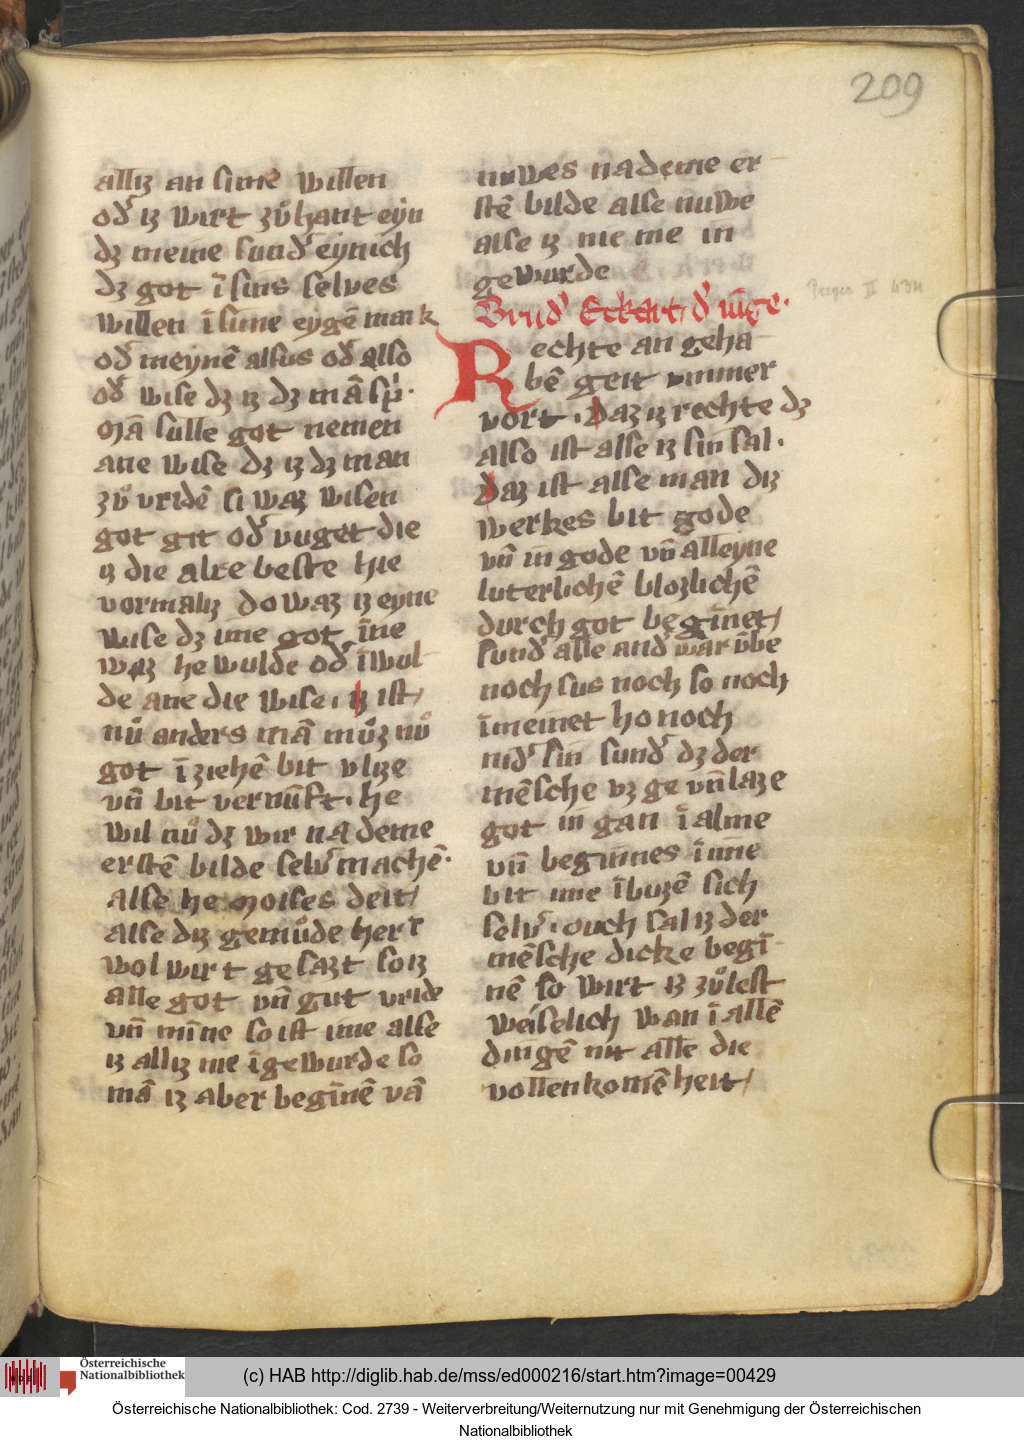 209
alliz an sime willen
od̕ iz wirt zůhant eyn
dz meine sund̕ eynich
dz got ī sins selves
willen ī sime eygē mark
od̕ meynē alsus od̕ also
od̕ wise dz iz dz mā sp̕.
Mā sulle got nemen
ane wise dz iz dz man
zů vridē si waz wisen
got git od̕ vuget die
iz die alre beste hie
vormaliz do waz iz eyne
wise dz ime got īne
waz he wulde od̕ ī wol
de ane die wise. iz ist
nů anders mā můz nů
got ī ziehē bit vlize
vn̄ bit vernūft. he
wil nů dz wir na deme
erstē bilde selv̕ machē.
Alse he Moises deit
alse diz gemůde her ī
wol wirt gesazt so iz
alle got vn̄ gut vride
vn̄ mīne so ist ime alse
iz alliz nie ī gewurde so
mā iz aber begīnē vā
nuwes na deme er
stē bilde alse nuwe
alse iz nie me in
gewurde
Brud̕ Eckart d̕ iūge.
Rechte an geha
bē geit vmmer
vort. Daz iz rechte dz
also ist alse iz sin sal.
Daz ist alse man diz
werkes bit gode
vn̄ in gode vn̄ alleyne
luterlichē blozlichē
durch got begīnet
sund̕ alle and̕ warūbe
noch sus noch so noch
īmeinet ho noch
nid̕ sin sund̕ dz der
mēsche vz ge vn̄ laze
got in gan ī alme
vn̄ beginnes ī ime
bit ime ībuzē sich
selv̕. ouch sal iz der
mēsche dicke begī
nē so wirt iz zůlest
weiselich wan ī allē
dingē nit alle die
vollenkomēheit
Preger II 434
Österreichische
Nationalbibliothek
(c) HAB http://diglib.hab.de/mss/ed000216/start.htm?image=00429
Österreichische Nationalbibliothek: Cod. 2739 - Weiterverbreitung/Weiternutzung nur mit Genehmigung der Österreichischen
Nationalbibliothek